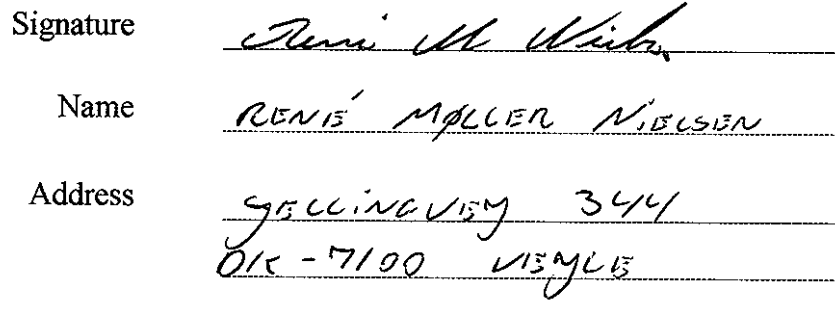 Signature René M Nielsen
Name RENÉ MØLLER NIELSEN
Address JELLINGVEJ 344
DK-7100 VEJLE